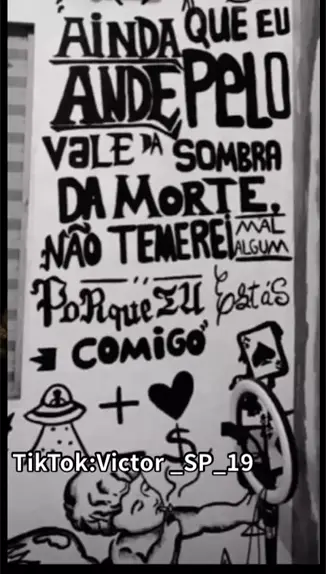 AINDA QUE EU
ANDE PELO
VALE DA SOMBRA
DA MORTE,
NÃO TEMEREI MAL
ALGUM
PORQUE TU ESTÁS
COMIGO"
+
$
TikTok:Victor _SP_19